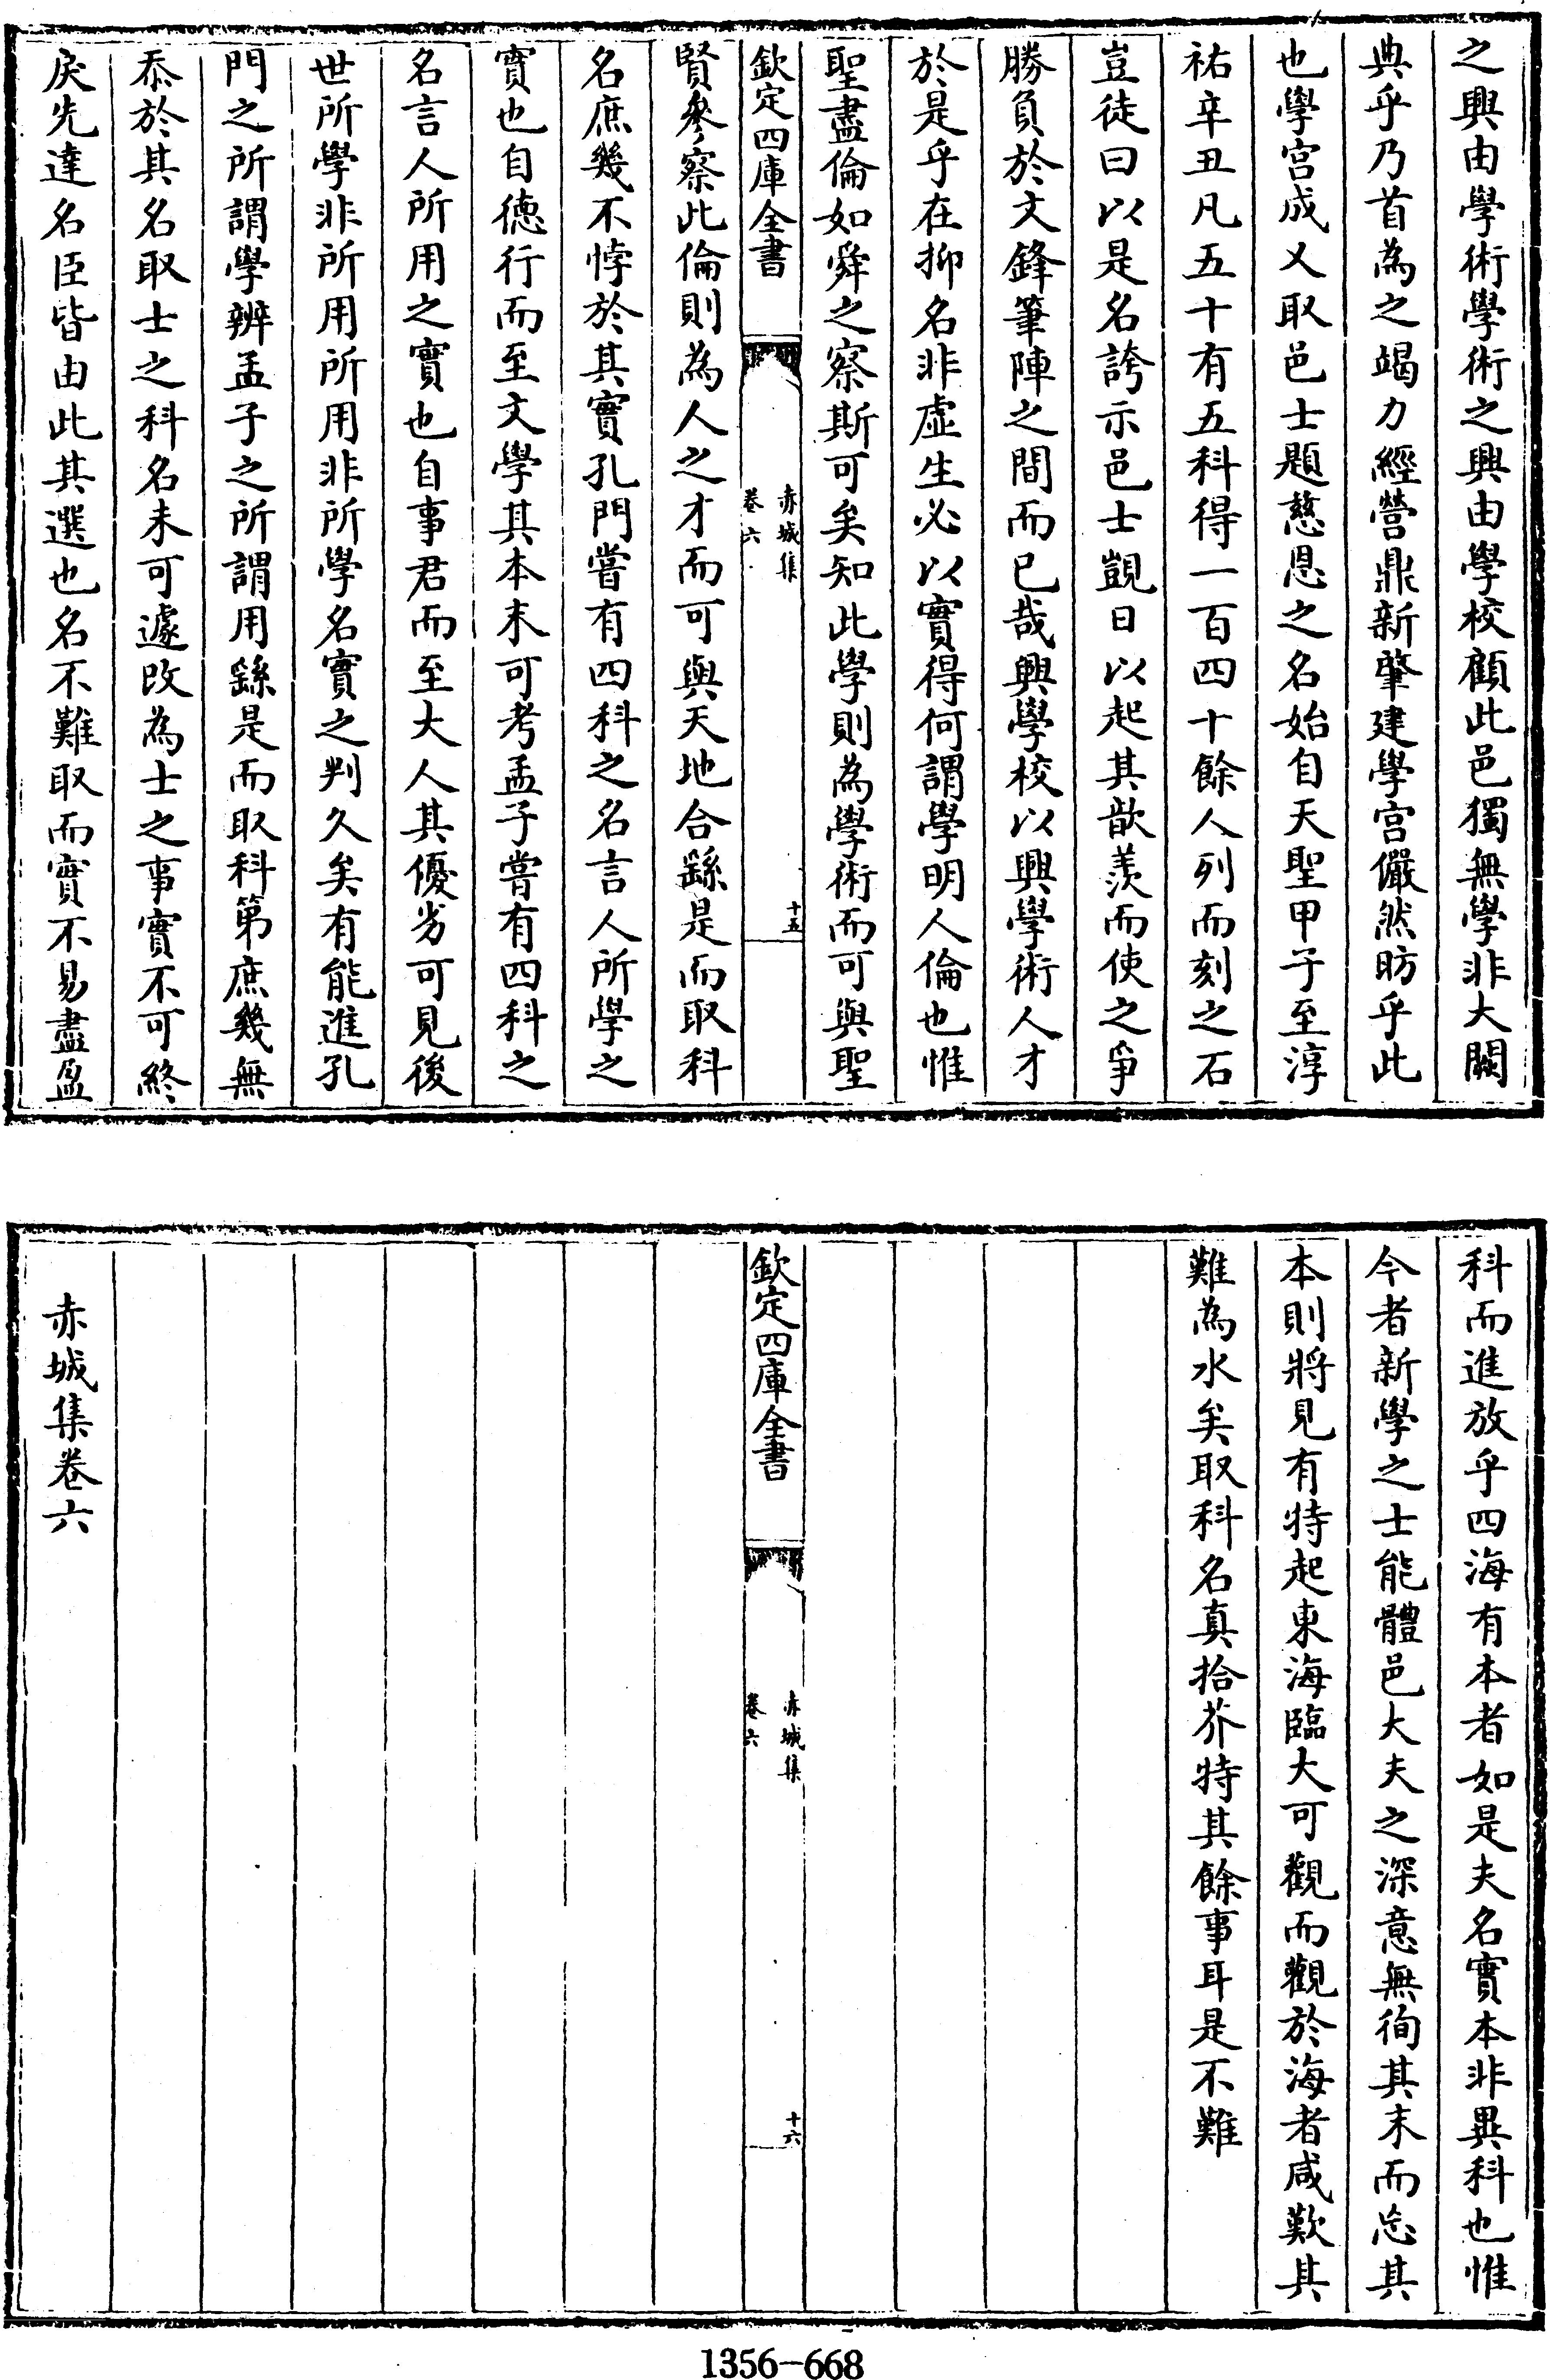 之興由學術學術之興由學校顧此邑獨無學非大闕
典乎乃首為之竭力經營鼎新肇建學宫儼然昉乎此
也學宫成乂取邑士題慈恩之名始自天聖甲子至淳
祐辛丑凡五十有五科得一百四十餘人列而刻之石
豈徒曰以是名誇示邑士覬日以起其歆羡而使之爭
勝負於文鋒筆陣之間而已哉興學校以興學術人才
於是乎在抑名非虛生必以實得何謂學明人倫也惟
聖盡倫如舜之察斯可矣知此學則為學術而可與聖
欽定四庫全書
赤城集
卷六
十五
賢參察此倫則為人之才而可與天地合繇是而取科
名庶幾不悖於其實孔門嘗有四科之名言人所學之
實也自德行而至文學其本末可考孟子嘗有四科之
名言人所用之實也自事君而至大人其優劣可見後
世所學非所用所用非所學名實之判久矣有能進孔
門之所謂學辨孟子之所謂用繇是而取科第庶幾無
忝於其名取士之科名未可遽改為士之事實不可終
戾先達名臣皆由此其選也名不難取而實不易盡盈
科而進放乎四海有本者如是夫名實本非異科也惟
今者新學之士能體邑大夫之深意無徇其末而忘其
本則將見有特起東海臨大可觀而觀於海者咸歎其
難為水矣取科名真拾芥特其餘事耳是不難
欽定四庫全書
赤城集
卷六
十六
赤城集卷六
1356-668